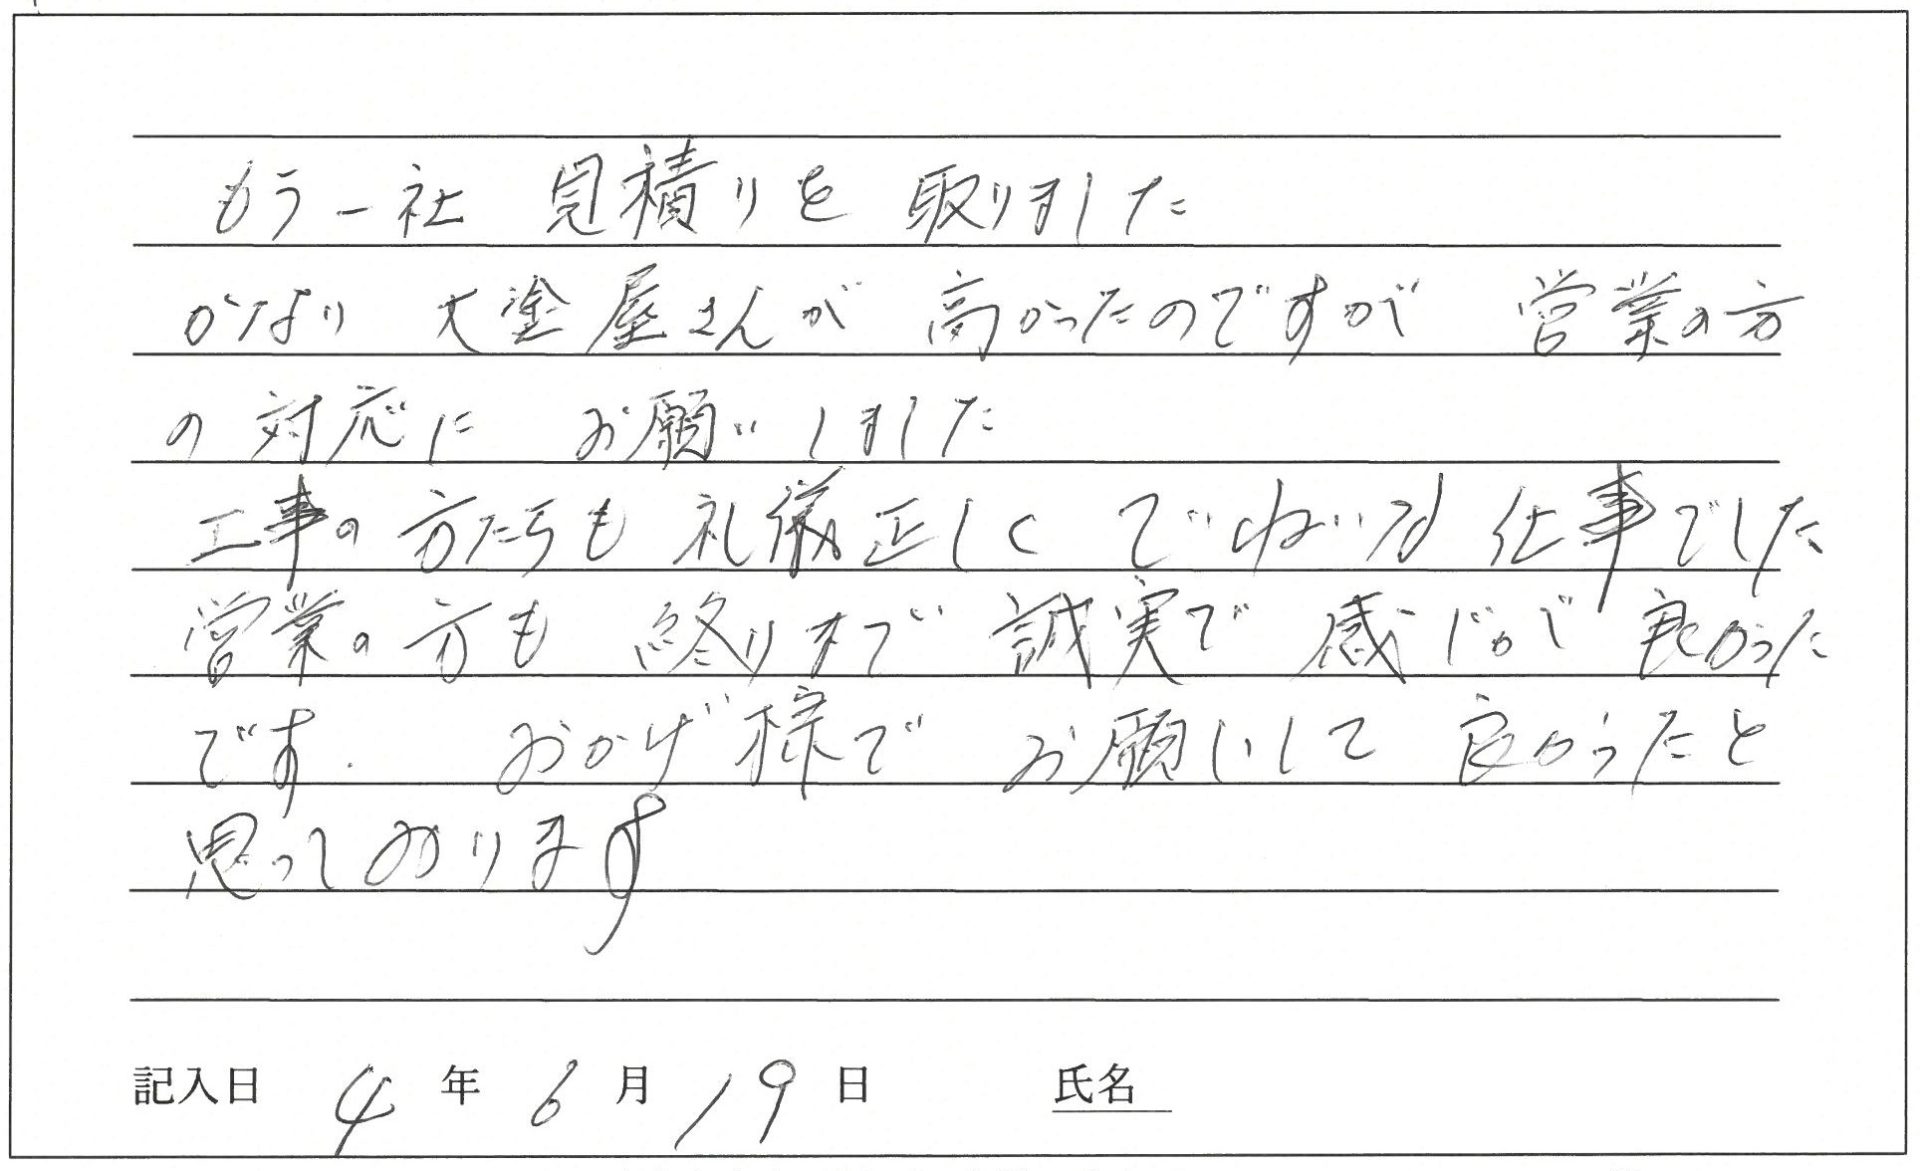 もう一社 見積りを 取りました
かなり 大塗屋さんが 高かったのですが 営業の方
の対応に お願いしました
工事の方たちも 礼儀正しく ていねいな 仕事でした
営業の方も 終りまで 誠実で 感じがで 良かった
です. おかげ様で お願いして 良かったと
思っております
記入日 4 年 6 月 19 日 氏名